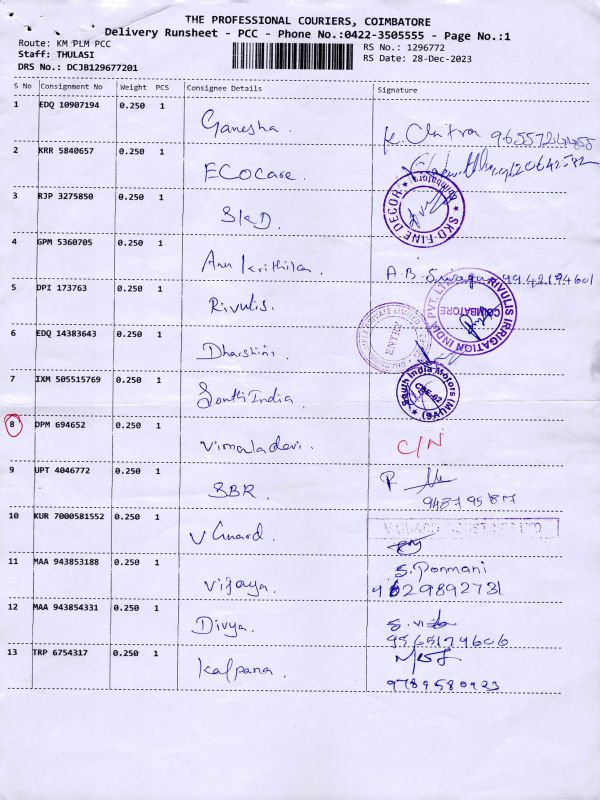 THE PROFESSIONAL COURIERS, COIMBATORE
Delivery Runsheet - PCC - Phone No.:0422-3505555 - Page No.:1
Route: KM PLM PCC
RS No.: 1296772
Staff: THULASI
RS Date: 28-Dec-2023
DRS No.: DCJB129677201
S No Consignment No Weight PCS Consignee Details Signature
1 EDQ 10907194 0.250 1 Ganesha.
K. Chitra
2 KRR 5840657 0.250 1 ECOCare.
3 RJP 3275850 0.250 1 SKD.
SKD-FINE DECOR
4 GPM 5360705 0.250 1 Anu Krithika.
A.B. 9942194601
5 DPI 173763 0.250 1 Rivulis.
RIVULIS IRRIGATION INDIA PVT. LTD.
COIMBATORE
6 EDQ 14383643 0.250 1 Dharshini.
7 IXM 505515769 0.250 1 South India.
South India Motors
CBE-02
8 DPM 694652 0.250 1 Vimaladevi.
C/N
9 UPT 4046772 0.250 1 SBR.
10 KUR 7000581552 0.250 1 V Guard.
11 MAA 943853188 0.250 1 Vijaya.
S. Ponmani
12 MAA 943854331 0.250 1 Divya.
13 TRP 6754317 0.250 1 Kalpana.
9789580923